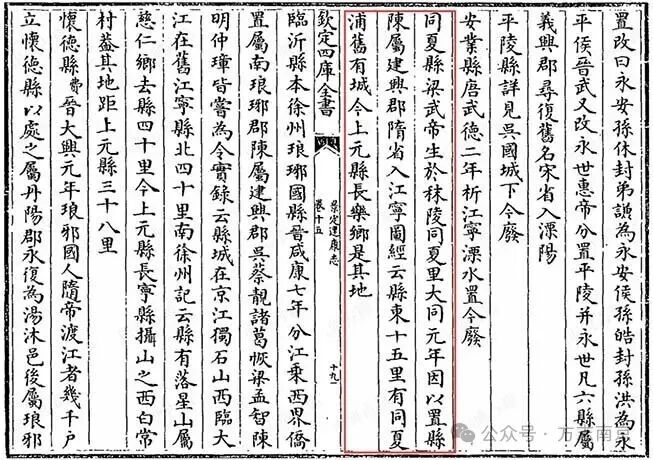 置改曰永安孫休封弟謙為永安侯孫皓封孫洪為永
平侯晉武又改永世惠帝分置平陵并永世凡六縣屬
義興郡尋復舊名宋省入溧陽
平陵縣詳見吳國城下今廢
安業縣唐武德二年析江寧溧水置今廢
同夏縣梁武帝生於秣陵同夏里大同元年因以置縣
陳屬建興郡隋省入江寧圖經云縣東十五里有同夏
浦舊有城今上元縣長樂鄉是其地
欽定四庫全書
景定建康志
卷十五
十九
臨沂縣本徐州琅琊國縣晉咸康七年分江乘西界僑
置屬南琅琊郡陳屬建興郡吳蔡靚諸葛恢梁孟智陳
明仲璋皆嘗為令實錄云縣城在京江獨石山西臨大
江在舊江寧縣北四十里南徐州記云縣有落星山屬
慈仁鄉去縣四十里今上元縣長寧縣攝山之西白常
村蓋其地距上元縣三十八里
懷德縣費晉大興元年琅邪國人隨帝渡江者幾千戶
立懷德縣以處之屬丹陽郡永復為湯沐邑後屬琅邪
公众号